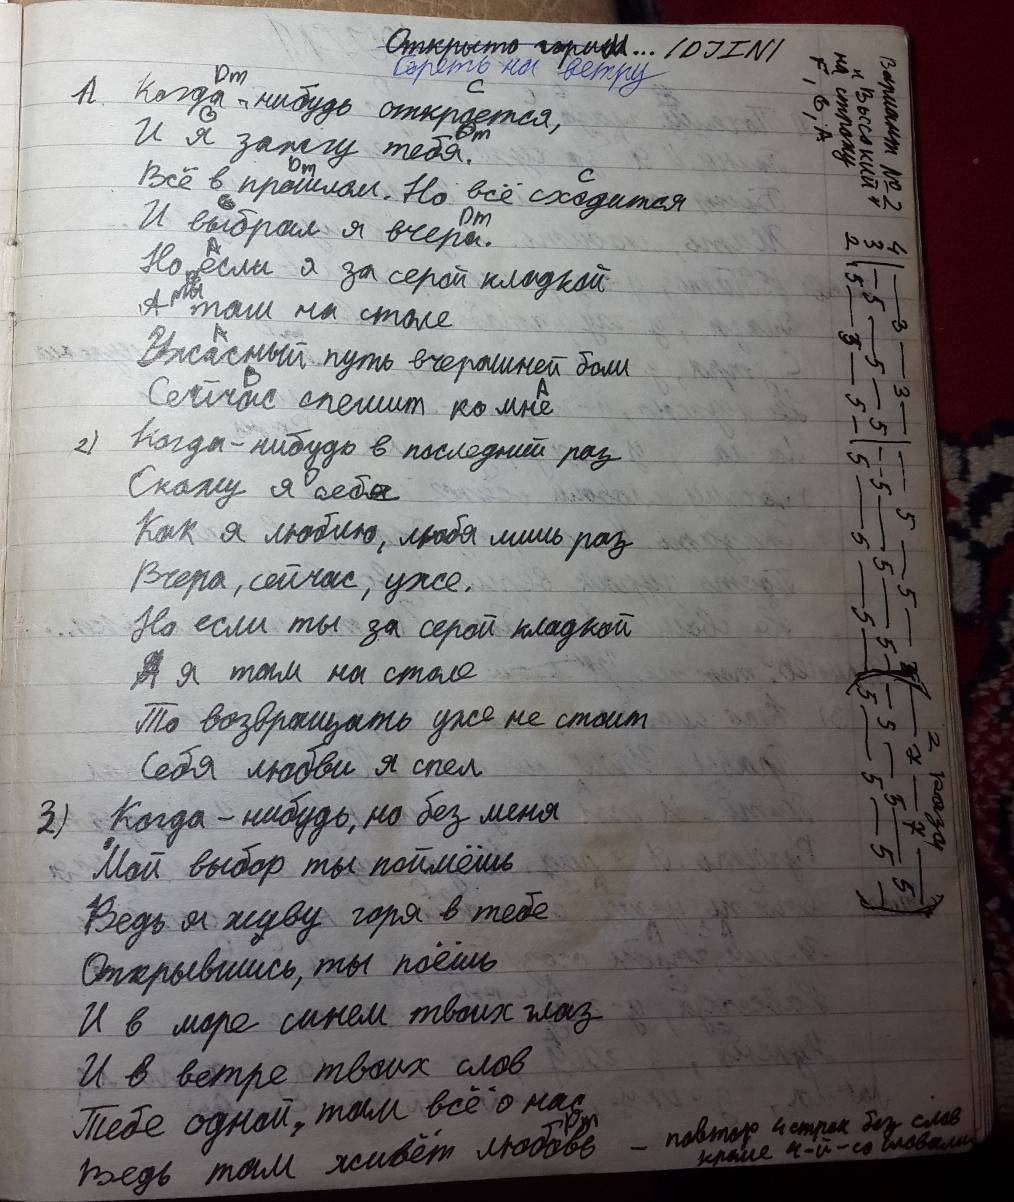 Открыто горим... /DJIN/
Гореть на ветру
1. Когда-нибудь откроется,
И я зажгу тебя.
Всё в прошлом. Но всё сходится
И выбрал я вчера.
Но если я за серой кладкой
А ты там на столе
Ужасный путь вчерашней боли
Сейчас спешит ко мне
2) Когда-нибудь в последний раз
Скажу я о себе
Как я люблю, любя лишь раз
Вчера, сейчас, уже.
Но если ты за серой кладкой
А я там на столе
То возвращать уже не стоит
Себя любви я спел
3) Когда-нибудь, но без меня
Мой выбор ты поймёшь
Ведь я живу горя в тебе
Открывшись, ты поёшь
И в море синем твоих глаз
И в ветре твоих слов
Тебе одной, там всё о нас
Ведь там живёт любовь – повтор 4 строк без слов
кроме 4-й-со словами
Вариант №2
и Высокий
на строку
F, B, A
2 раза